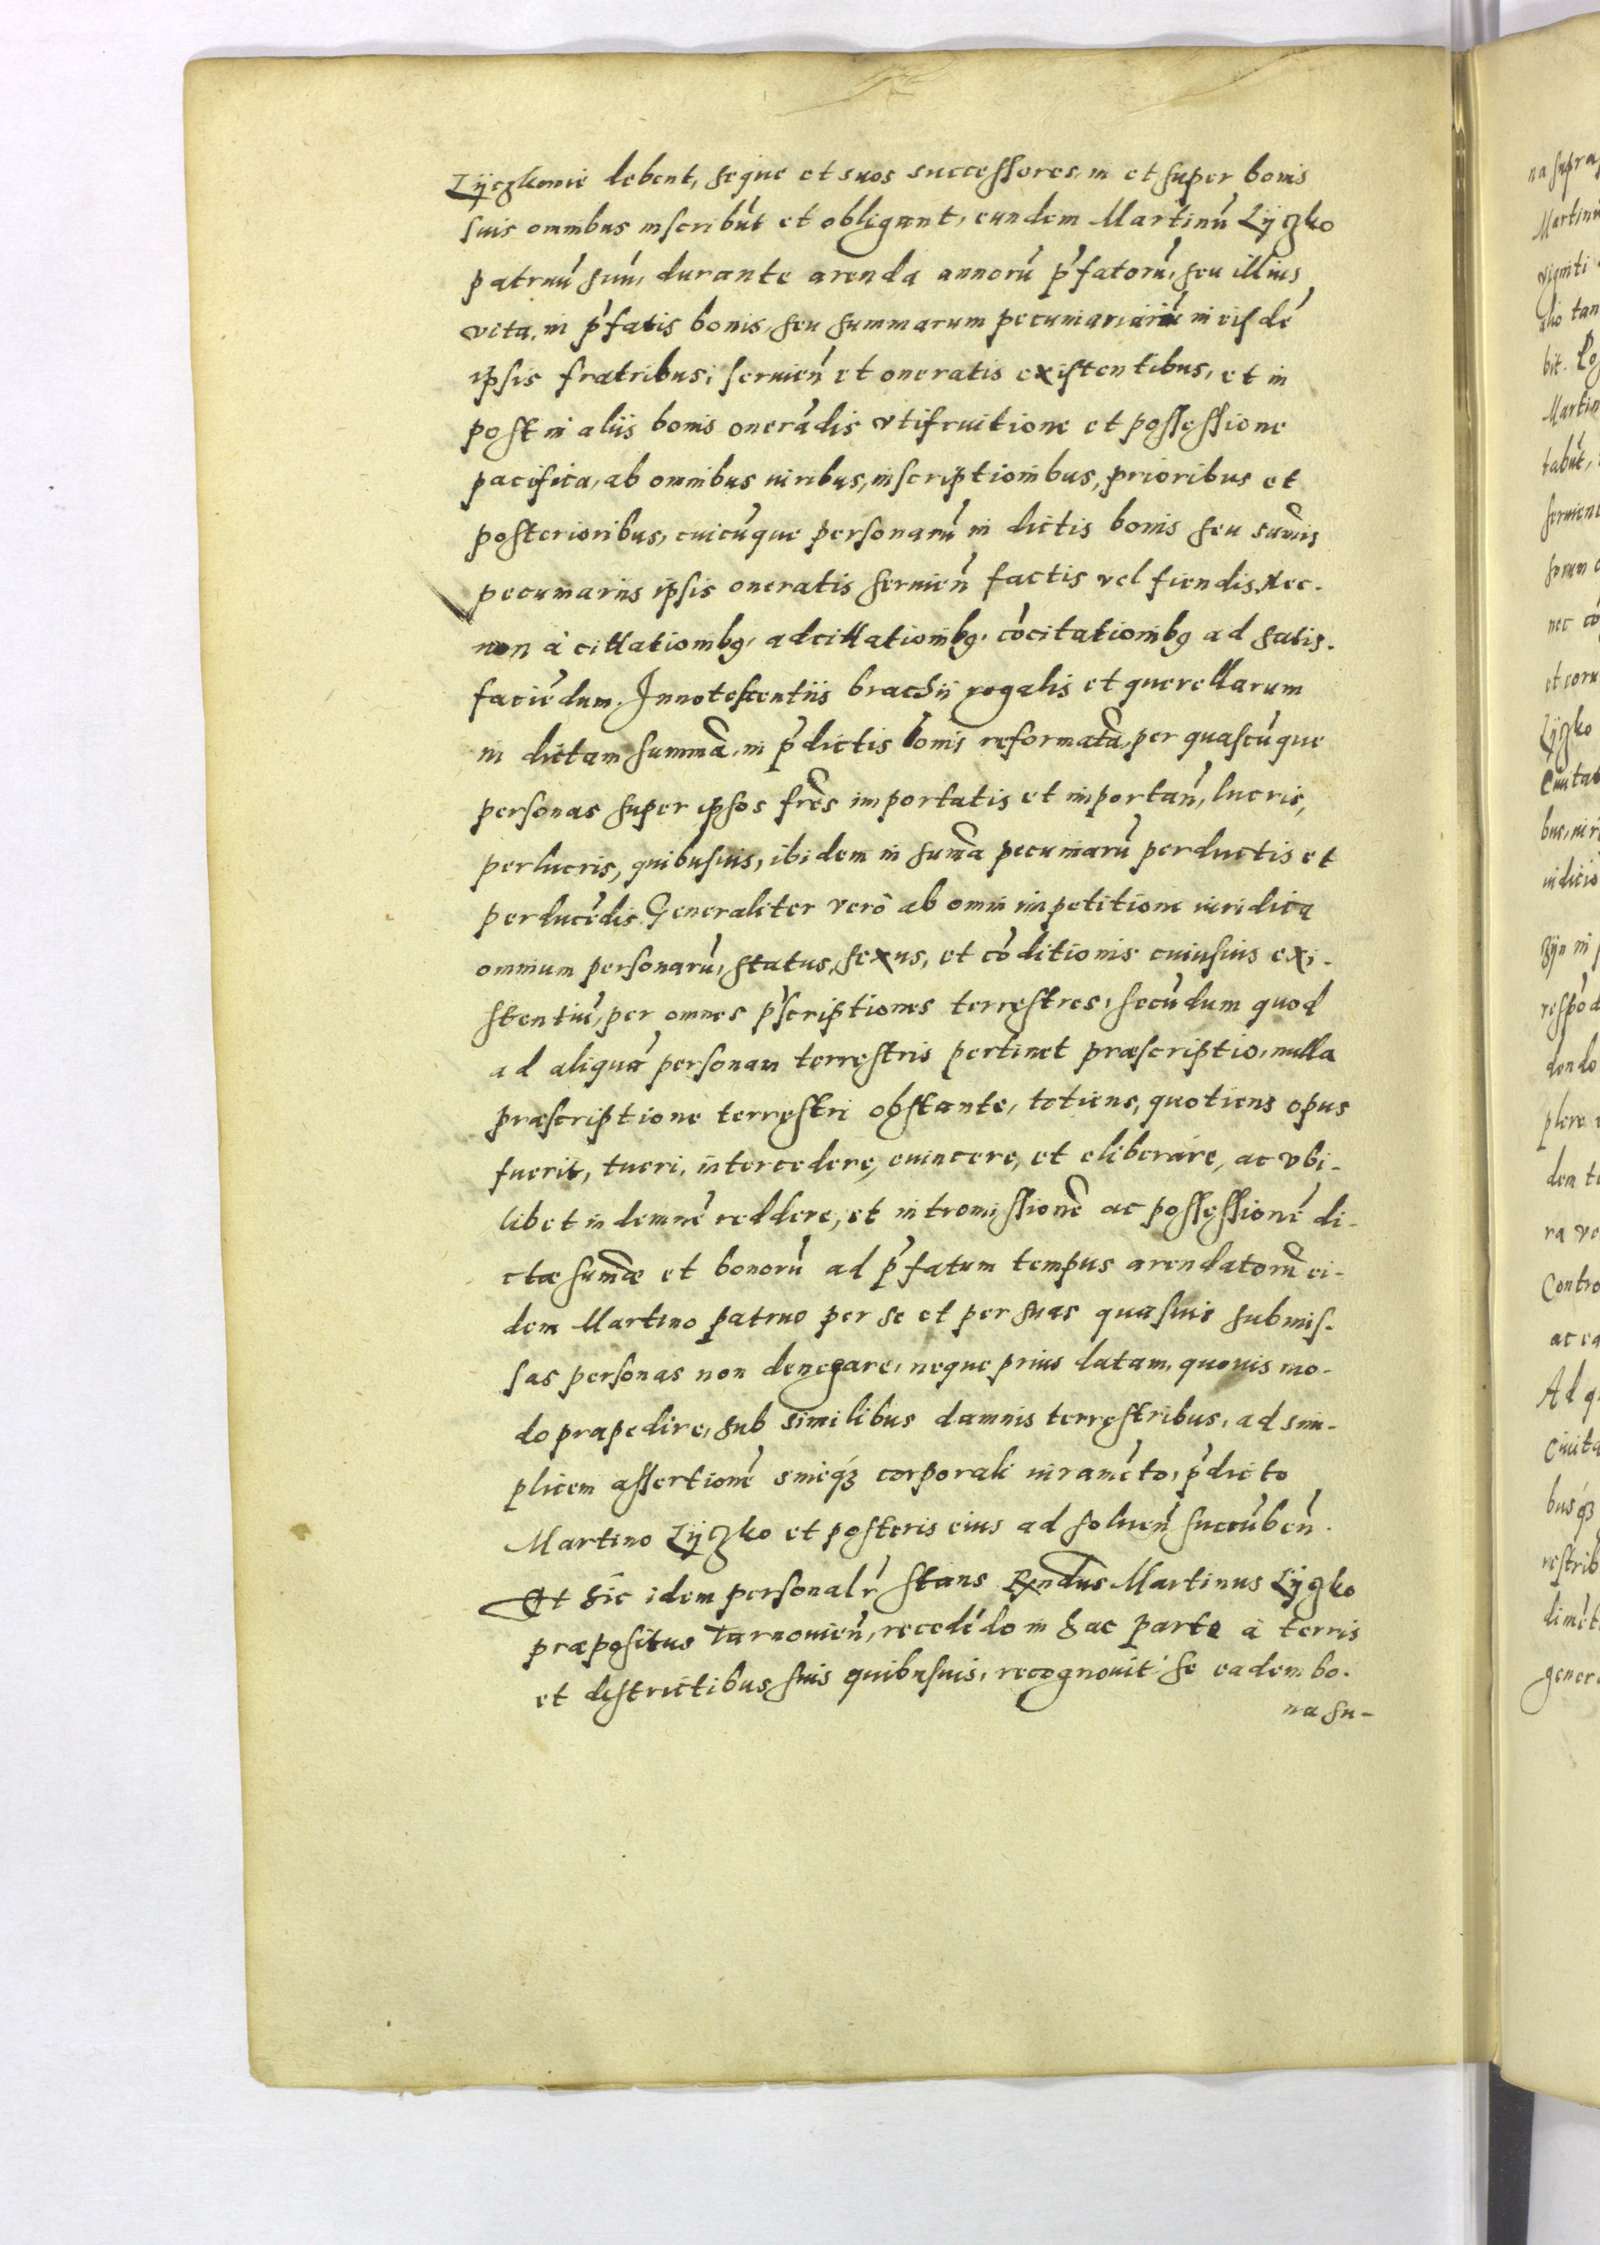 Lÿczkowie debent, seque et suos successores, in et super bonis
suis omnibus inscribūt et obligant, eundem Martinū Lÿczko
patruū suū, durante arenda annorū p̄fatorū, seu illius
vita, in p̄fatis bonis, seu summarum pecuniariarū in eisdē
ipsis fratribus, servien̄ et oneratis existentibus, et in
post in aliis bonis onerādis utifruitione et possessione
pacifica, ab omnibus iuribus, inscriptionibus, prioribus et
posterioribus, cuicūque personarū in dictis bonis seu sūmis
pecuniariis ipsis oneratis servien̄ factis vel fiendis. Nec-
non à citationibq, adcitationibq, cōcitationibq ad satis-
faciēdum. Innotescentiis brachii regalis et querellarum
in dictam summā, in p̄dictis bonis reformatā, per quascūque
personas super ipsos frēs importatis et importan̄, lucris,
perlucris, quibusvis, ibidem in sum̄a pecuniarū perductis et
perducēdis. Generaliter verò ab omni impetitione iuridica
omnium personarū, status, sexus, et cōditionis cuiusvis exi-
stentiū, per omnes p̄scriptiones terrestres, secūdum quod
ad aliquā personam terrestris pertinet præscriptio, nulla
præscriptione terrestri obstante, totiens, quotiens opus
fuerit, tueri, intercedere, evincere, et eliberare, ac ubi-
libet indemnē reddere, et intromissionē ac possessionē di-
ctæ sum̄æ et bonorū ad p̄fatum tempus arendatorū ei-
dem Martino patruo per se et per suas quasvis submis-
sas personas non denegare, neque prius datam, quovis mo-
do præpedire, sub similibus damnis terrestribus, ad sim-
plicem assertionē sineqȝ corporali iuramēto, p̄dicto
Martino Lÿczko et posteris eius ad solven̄ succūben̄.
Et hîc idem personalr̄ stans Rx̄ndus Martinus Lÿczko
præpositus Tarnovien̄, recedēdo in hac parte à terris
et districtibus suis quibusvis, recognovit se eadem bo-
na su-